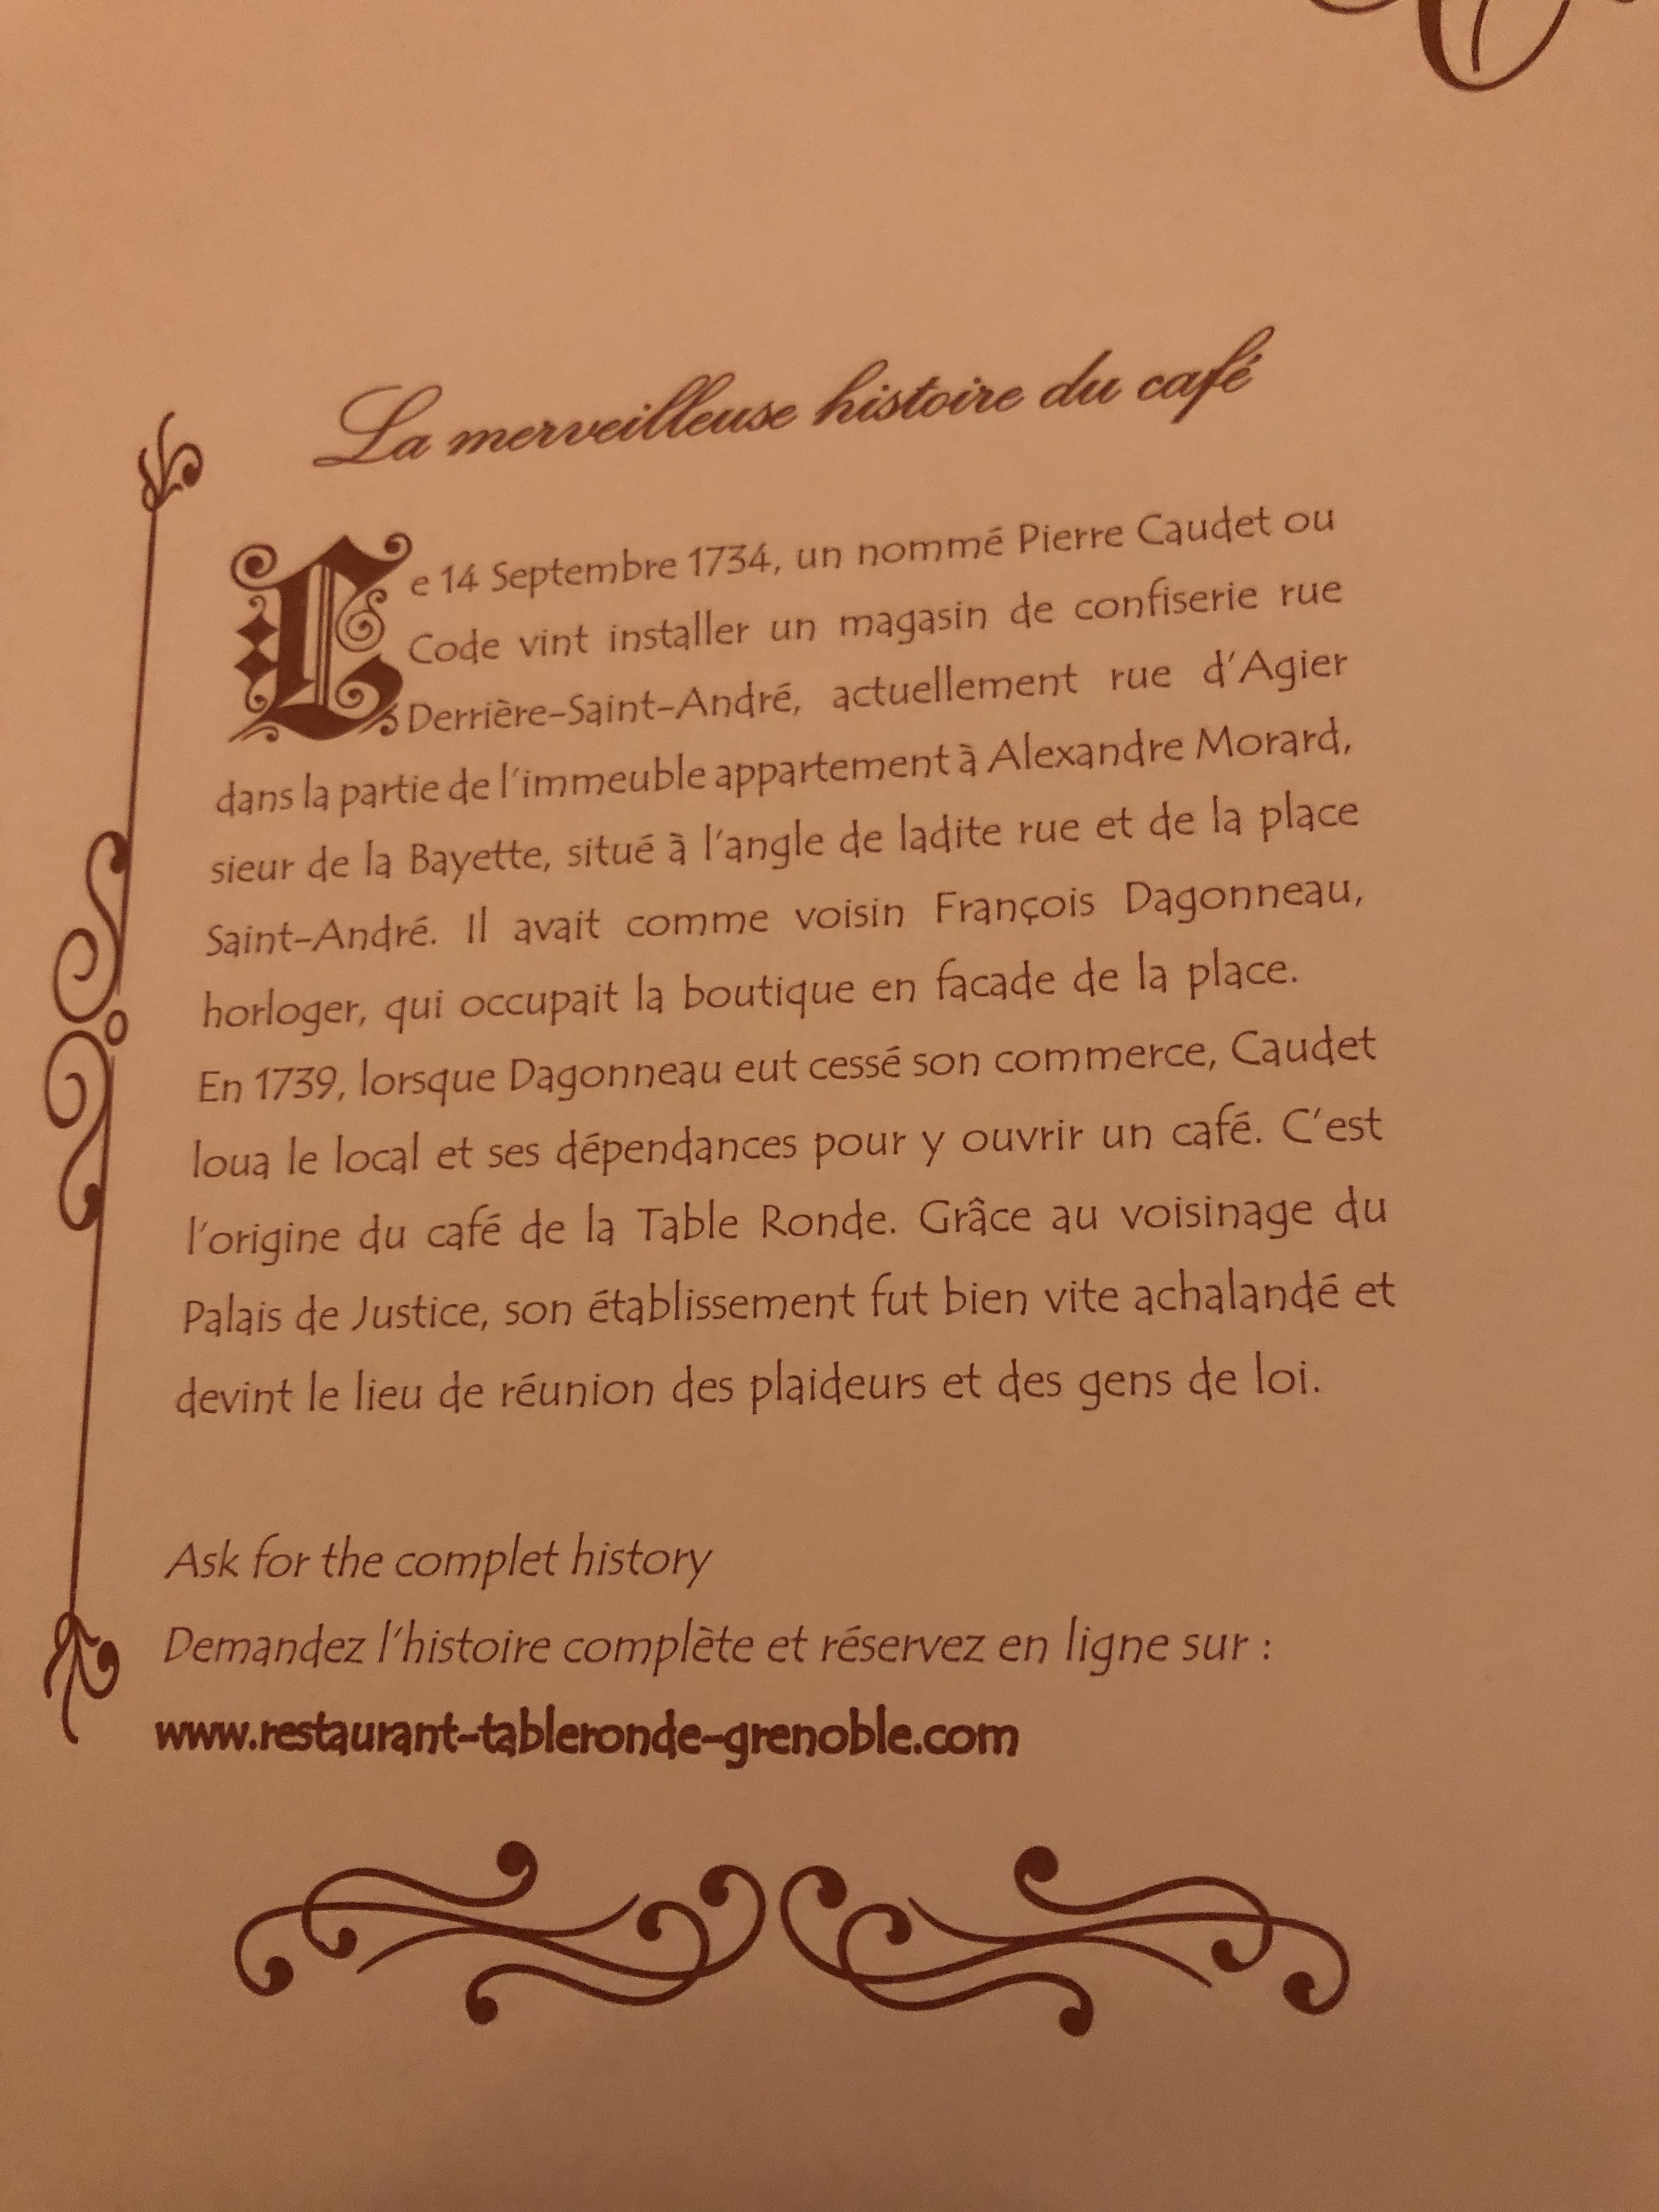 La merveilleuse histoire du café
Le 14 Septembre 1734, un nommé Pierre Caudet ou
Code vint installer un magasin de confiserie rue
Derrière-Saint-André, actuellement rue d'Agier
dans la partie de l'immeuble appartement à Alexandre Morard,
sieur de la Bayette, situé à l'angle de ladite rue et de la place
Saint-André. Il avait comme voisin François Dagonneau,
horloger, qui occupait la boutique en facade de la place.
En 1739, lorsque Dagonneau eut cessé son commerce, Caudet
loua le local et ses dépendances pour y ouvrir un café. C'est
l'origine du café de la Table Ronde. Grâce au voisinage du
Palais de Justice, son établissement fut bien vite achalandé et
devint le lieu de réunion des plaideurs et des gens de loi.
Ask for the complet history
Demandez l'histoire complète et réservez en ligne sur :
www.restaurant-tableronde-grenoble.com